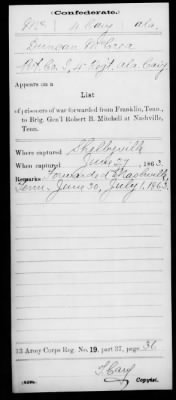 Confederate.
Mc 4 Cav Ala.
Duncan McCrea
Pvt. Co. I, 4 Regt. Ala. Cav'y
Appears on a
List
of prisoners of war forwarded from Franklin, Tenn.,
to Brig. Gen'l Robert B. Mitchell at Nashville,
Tenn.
Where captured Shelbyville
When captured June 27, 1863.
Remarks Forwarded Nashville
Tenn. June 30, July 1, 1863
13 Army Corps Reg. No. 19, part 37, page 36
Cary
Copyist.